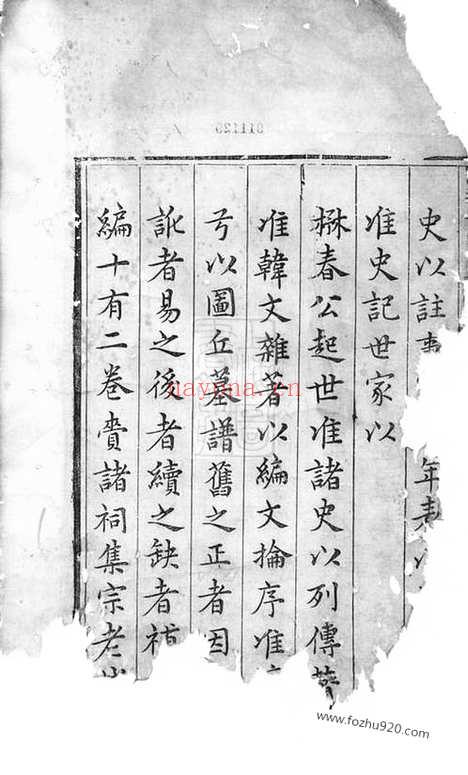 史以註 年表
准史記世家以
楙春公起世准諸史以列傳
准韓文雜著以編文掄序准
以圖丘墓譜舊之正者因
訛者易之後者續之缺者補
編十有二卷賷諸祠集宗老
nayona.cn
www.fozhu920.com